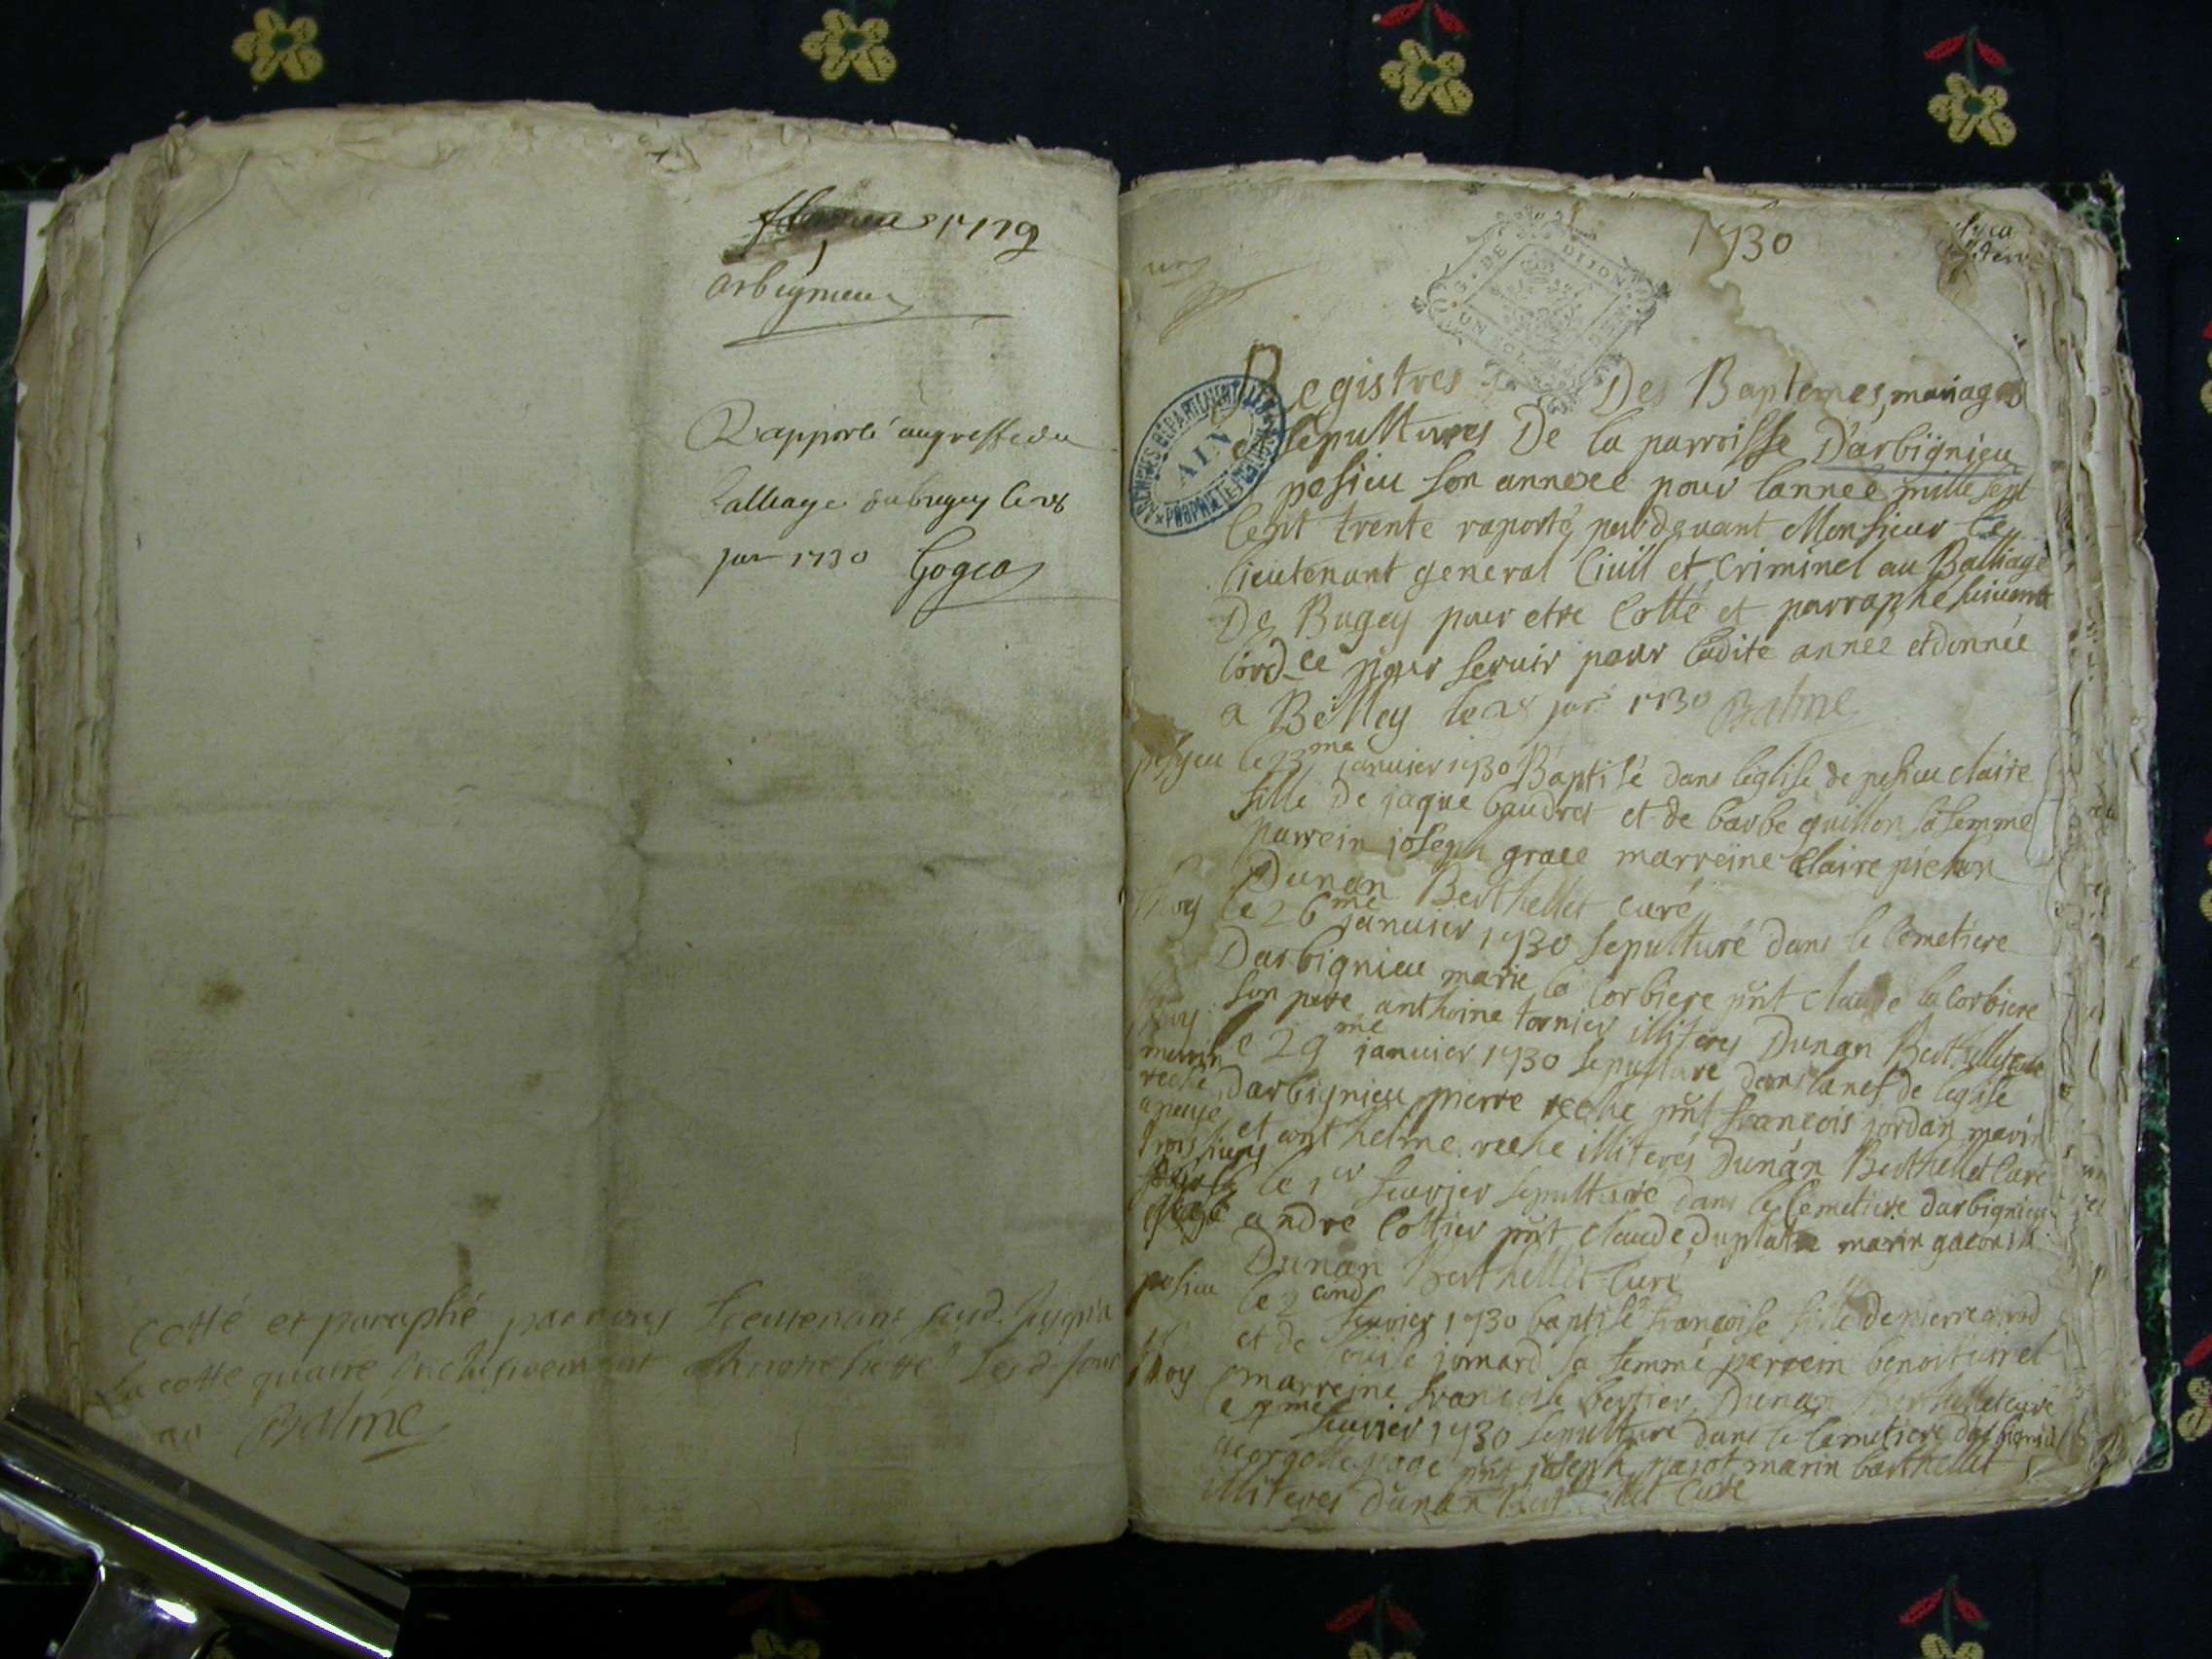 1729
arbignieu
Rapporté au greffe du
balliage du bugey le 28
jan 1730 Gogeo
cotté et paraphé par nous Lieutenant susd. jusqu'a
la cotte quatre inclusivement
Balme
1730
G. DE DIJON
UN SOL
ARCHIVES DEPARTEMENTALES
AIN
PROPRIETE PUBLIQUE
Registres Des Baptemes, mariages
et sepultures De la parroisse D'arbignieu
pesieu son annexe pour lannee mille sept
Cent trente raporté pardevant Monsieur le
lieutenant general Civil et Criminel au Balliage
De Bugey pour etre Cotté et parraphe suivant
lord.ce pour servir pour ladite annee et donnée
a Belley le 28 jan 1730 Balme
pesyeu le 23me janvier 1730 Baptisé dans leglise de pesieu claire
fille de jaque baudret et de barbe guillon sa femme
parrein joseph grace marreine Claire picton
Dunan Berthellet curé
le 26me janvier 1730 sepulturé dans le Cemetiere
Darbignieu marie la Corbiere pnt claude la Corbiere
son pere anthoine tornier illiteres Dunan Berthellet curé
le 29me janvier 1730 sepulturé dans la nef de leglise
darbignieu pierre reche pnt francois jordan marin
et anthelme reche illiterés Dunan Berthellet Curé
marin
reche
trois liens
le 1er fevrier sepulturé dans le Cemetiere darbignieu
andre Cottier pnt claude duplatre marin
Dunan Berthellet Curé
pesieu le 2cond fevrier 1730 baptisé francoise fille de pierre girod
et de louise jomard sa femme parrein benoit
marreine francoise bertier Dunan Berthellet curé
fevrier 1730 sepulturé dans le Cemetiere darbignieu
pnt joseph pajot marin barthellet
illiteres Dunan Berthellet Curé